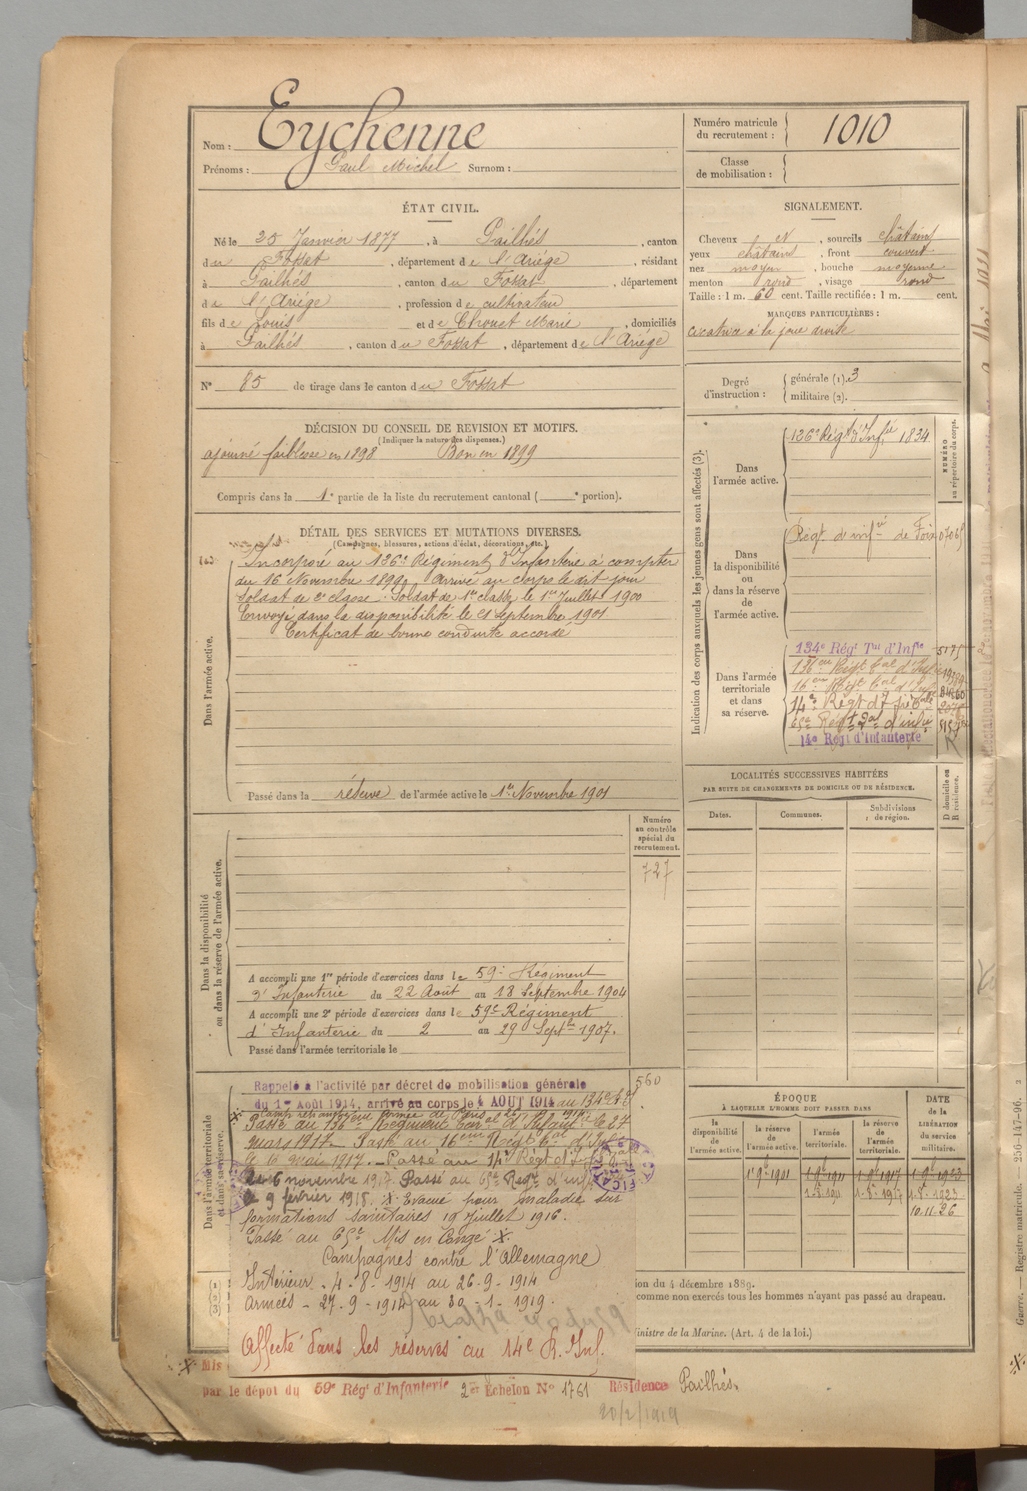 Nom : Eychenne
Prénoms : Paul Michel Surnom :
Numéro matricule
du recrutement : 1010
Classe
de mobilisation :
ÉTAT CIVIL.
Né le 25 Janvier 1877, à Pailhés, canton
du Fossat, département de l'Ariége, résidant
à Pailhés, canton du Fossat, département
de l'Ariége, profession de cultivateur
fils de Louis et de Chouet Marie, domiciliés
à Pailhés, canton du Fossat, département de l'Ariége
N° 85 de tirage dans le canton du Fossat
SIGNALEMENT.
Cheveux N, sourcils châtains
yeux châtains, front couvert
nez moyen, bouche moyenne
menton rond, visage rond
Taille : 1 m. 60 cent. Taille rectifiée : 1 m. cent.
MARQUES PARTICULIÈRES :
cicatrice à la joue droite
Degré
d'instruction :
générale (1). 3
militaire (2).
DÉCISION DU CONSEIL DE REVISION ET MOTIFS.
(Indiquer la nature des dispenses.)
ajourné faiblesse en 1898 Bon en 1899
Compris dans la 1e partie de la liste du recrutement cantonal ( e portion).
DÉTAIL DES SERVICES ET MUTATIONS DIVERSES.
(Campagnes, blessures, actions d'éclat, décorations, etc.)
Dans l'armée active.
Incorporé au 126e Régiment d'Infanterie à compter
du 16 Novembre 1899. Arrivé au corps le dit jour
Soldat de 2e classe. Soldat de 1re classe le 1er Juillet 1900
Envoyé dans la disponibilité le 21 Septembre 1901
Certificat de bonne conduite accordé
Passé dans la réserve de l'armée active le 1er Novembre 1901
Indication des corps auxquels les jeunes gens sont affectés (3).
NUMÉRO
au répertoire du corps.
Dans
l'armée active.
126e Régt d'Infie 1834
Dans
la disponibilité
ou
dans la réserve
de
l'armée active.
Régt d'infie de Foix
Dans l'armée
territoriale
et dans
sa réserve.
134e Régt Tal d'Infie
136eme Régt Tal d'Infie
16eme Régt Tal d'Infie
14e Régt d'Infie
65e Régt Tal d'infie
14e Régt d'Infanterie
LOCALITÉS SUCCESSIVES HABITÉES
PAR SUITE DE CHANGEMENTS DE DOMICILE OU DE RÉSIDENCE.
Dates.
Communes.
Subdivisions
de région.
D domicile ou
R résidence.
Dans la disponibilité
ou dans la réserve de l'armée active.
Numéro
au contrôle
spécial du
recrutement.
727
A accompli une 1re période d'exercices dans le 59e Régiment
d'Infanterie du 22 Août au 18 Septembre 1904
A accompli une 2e période d'exercices dans le 59e Régiment
d'Infanterie du 2 au 29 Septbre 1907.
Passé dans l'armée territoriale le
Dans l'armée territoriale
et dans sa réserve.
560
Rappelé à l'activité par décret de mobilisation générale
du 1er Août 1914, arrivé au corps le 4 AOUT 1914 au 134e
Passé au 136eme Régiment Tal d'Infant le 27
mars 1917. Passé au 16eme Régt Tal d'Infie
le 16 mai 1917. Passé au 14e Régt d'Infie
le 6 novembre 1917. Passé au 65e Regt d'infie
le 9 février 1918. X Evacué pour maladie sur
formations sanitaires 19 juillet 1916.
Passé au 65e Mis en Congé X.
Campagnes contre l'Allemagne
Intérieur. 4-8-1914 au 26-9-1914
Armées. 27-9-1914 au 30-1-1919.
Affecté dans les réserves au 14e R. Inf.
ÉPOQUE
À LAQUELLE L'HOMME DOIT PASSER DANS
la
disponibilité
de
l'armée active.
la réserve
de
l'armée active.
l'armée
territoriale.
la réserve
de
l'armée
territoriale.
DATE
de la
LIBÉRATION
du service
militaire.
1 9bre 1901
1 9bre 1911
1 9bre 1917
1 9bre 1923
1.8.1911
1.8.1917
1.8.1923
10.11.26
ion du 4 décembre 1889.
comme non exercés tous les hommes n'ayant pas passé au drapeau.
inistre de la Marine. (Art. 4 de la loi.)
X Mis
par le dépôt du 59e Régt d'Infanterie 2e Échelon N° 1761 Résidence Pailhés.
20/2/1919